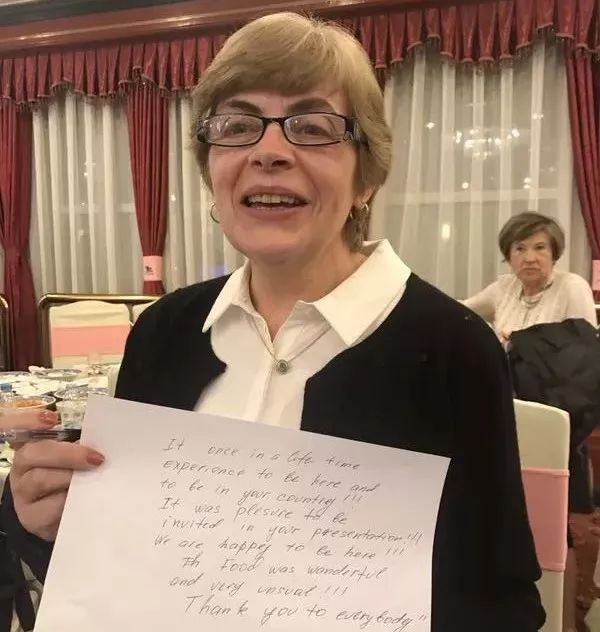 It once in a life time
experience to be here and
to be in your country !!!
It was plesure to be
invited in your presentation !!!
We are happey to be here !!!
Th Food was wanderful
and very unsual !!!
Thank you to everybody"